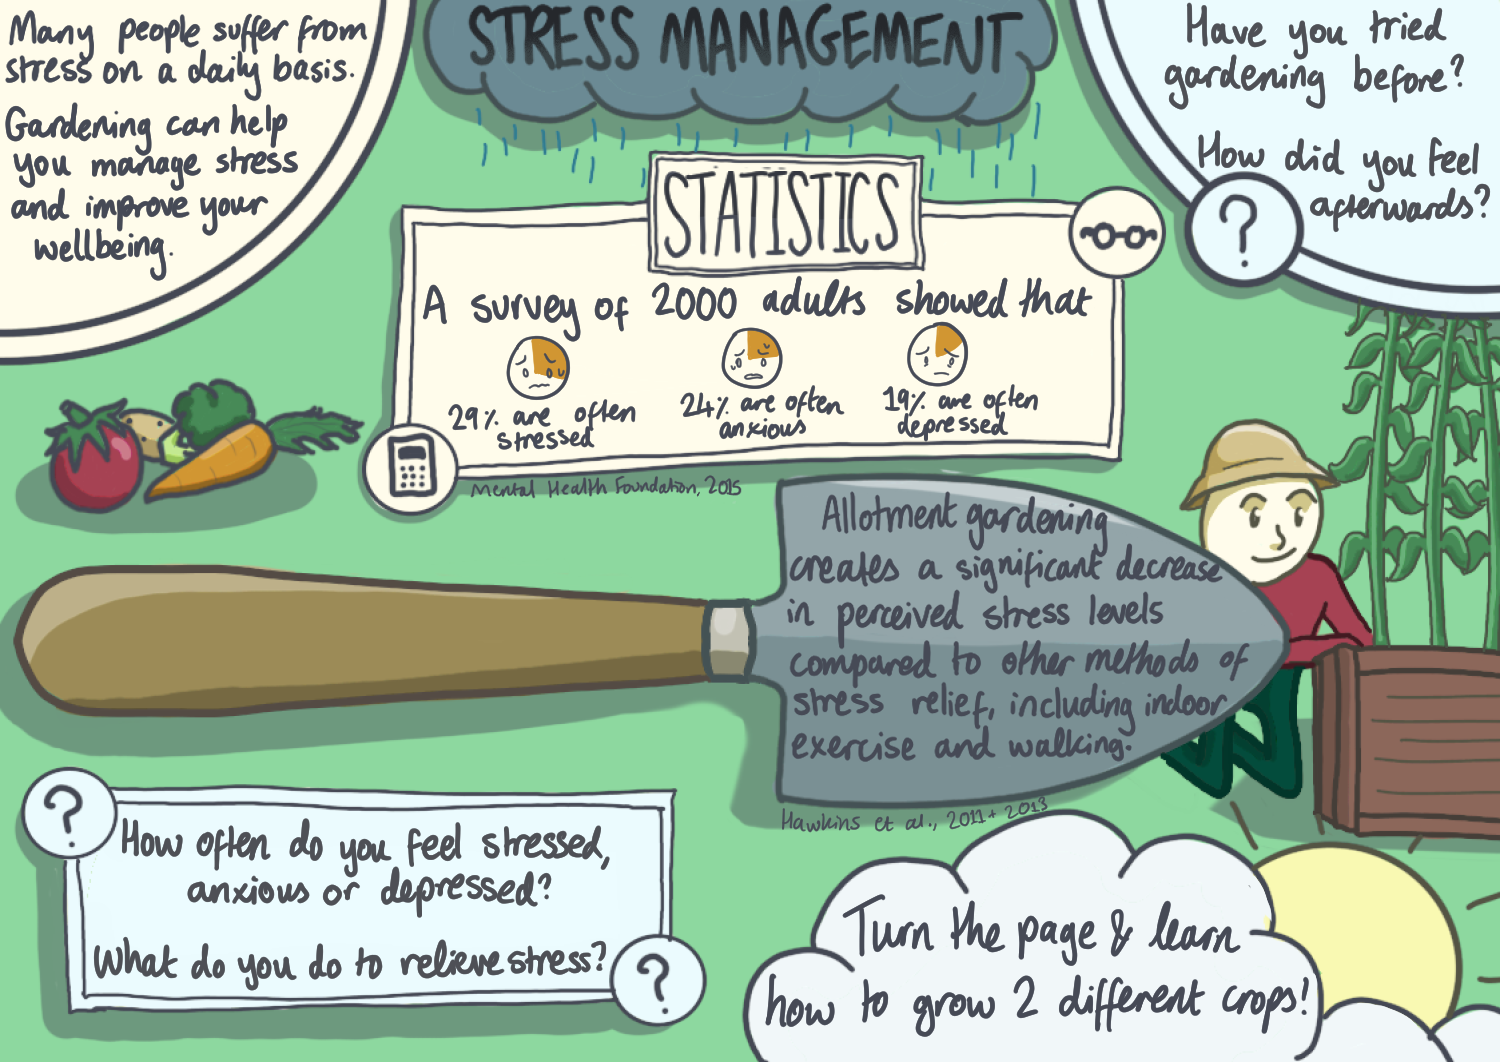 STRESS MANAGEMENT
Many people suffer from
stress on a daily basis.
Gardening can help
you manage stress
and improve your
wellbeing.
Have you tried
gardening before?
How did you feel
afterwards?
?
STATISTICS
A survey of 2000 adults showed that
29% are often
stressed
24% are often
anxious
19% are often
depressed
Mental Health Foundation, 2015
Allotment gardening
creates a significant decrease
in perceived stress levels
compared to other methods of
stress relief, including indoor
exercise and walking.
Hawkins et al., 2011 + 2013
?
How often do you feel stressed,
anxious or depressed?
What do you do to relieve stress?
?
Turn the page & learn
how to grow 2 different crops!